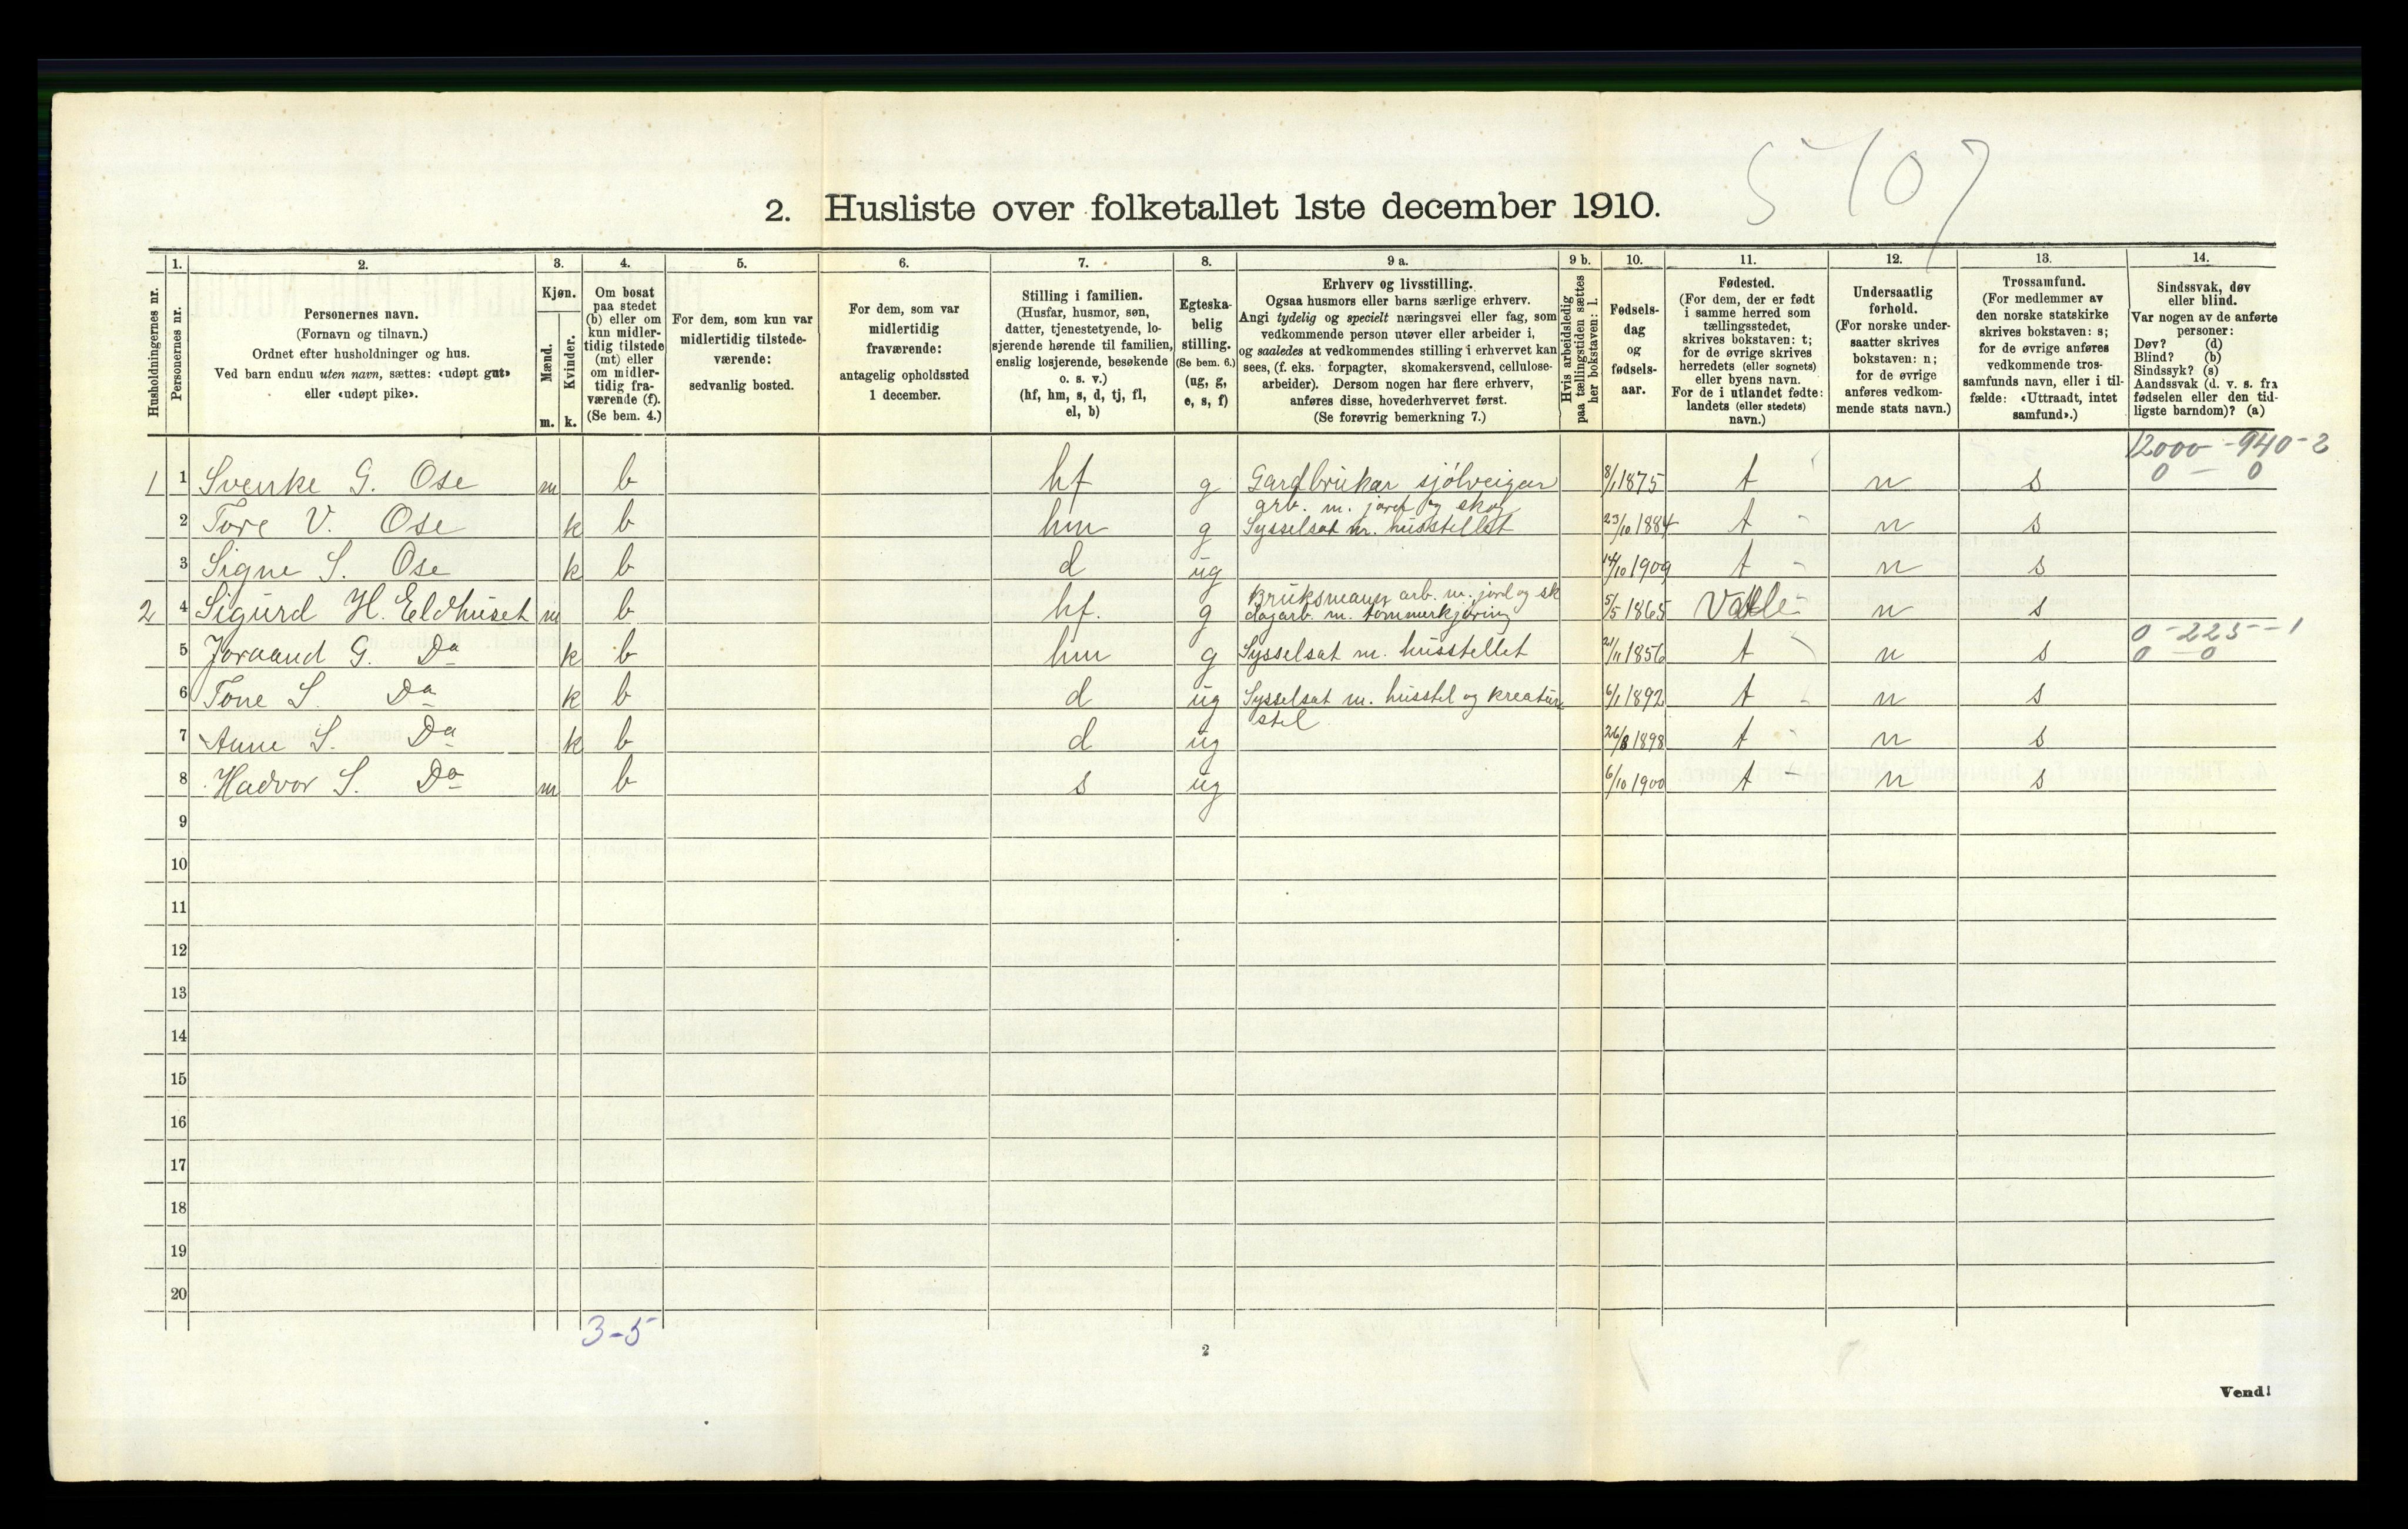 5107
2. Husliste over folketallet 1ste december 1910.
Husholdningernes nr.
1.
Personernes nr.
2.
Personernes navn.
(Fornavn og tilnavn.)
Ordnet efter husholdninger og hus.
Ved barn endnu uten navn, sættes: «udøpt gut»
eller «udøpt pike».
3.
Kjøn.
Mænd.
Kvinder.
m. k.
4.
Om bosat
paa stedet
(b) eller om
kun midler-
tidig tilstede
(mt) eller
om midler-
tidig fra-
værende (f).
(Se bem. 4.)
5.
For dem, som kun var
midlertidig tilstede-
værende:
sedvanlig bosted.
6.
For dem, som var
midlertidig
fraværende:
antagelig opholdssted
1 december.
7.
Stilling i familien.
(Husfar, husmor, søn,
datter, tjenestetyende, lo-
sjerende hørende til familien,
enslig losjerende, besøkende
o. s. v.)
(hf, hm, s, d, tj, fl,
el, b)
8.
Egteska-
belig
stilling.
(Se bem. 6.)
(ug, g,
e, s, f)
9 a.
Erhverv og livsstilling.
Ogsaa husmors eller barns særlige erhverv.
Angi tydelig og specielt næringsvei eller fag, som
vedkommende person utøver eller arbeider i,
og saaledes at vedkommendes stilling i erhvervet kan
sees, (f. eks. forpagter, skomakersvend, cellulose-
arbeider). Dersom nogen har flere erhverv,
anføres disse, hovederhvervet først.
(Se forøvrig bemerkning 7.)
9 b.
Hvis arbeidsledig
paa tællingstiden sættes
her bokstaven: l.
10.
Fødsels-
dag
og
fødsels-
aar.
11.
Fødested.
(For dem, der er født
i samme herred som
tællingsstedet,
skrives bokstaven: t;
for de øvrige skrives
herredets (eller sognets)
eller byens navn.
For de i utlandet fødte:
landets (eller stedets)
navn.)
12.
Undersaatlig
forhold.
(For norske under-
saatter skrives
bokstaven: n;
for de øvrige
anføres vedkom-
mende stats navn.)
13.
Trossamfund.
(For medlemmer av
den norske statskirke
skrives bokstaven: s;
for de øvrige anføres
vedkommende tros-
samfunds navn, eller i til-
fælde: «Uttraadt, intet
samfund».)
14.
Sindssvak, døv
eller blind.
Var nogen av de anførte
personer:
Døv? (d)
Blind? (b)
Sindssyk? (s)
Aandssvak (d. v. s. fra
fødselen eller den tid-
ligste barndom)? (a)
12000 - 940 - 2
0 - 0
1 1 Svenke G. Ose m b hf g Gardbrukar sjölveigar 8/1 1875 t n s
arb. m. jord og skog
2 Tore V. Ose k b hm g Sysselsat m. husstellet 23/10 1884 t - n s
3 Signe S. Ose k b d ug 14/10 1909 t - n s
Bruksmann arb. m. jord og sk
2 4 Sigurd H. Eldhuset m b hf. g dagarb. m. tömmerkjöring 5/5 1865 Valle - n s
0 - 225 - 1
5 Joraand G. Do k b hm g Sysselsat m. husstellet 21/11 1856 t n s 0 - 0
6 Tone S. Do k b d ug Sysselsat m. husstel og kreatur 6/1 1892 t - n s
stel
7 Anne S. Do k b d ug 26/8 1898 t - n s
8 Hadvor S. Do m b s ug 6/10 1900 t - n s
9
10
11
12
13
14
15
16
17
18
19
20
3-5
2
Vend!